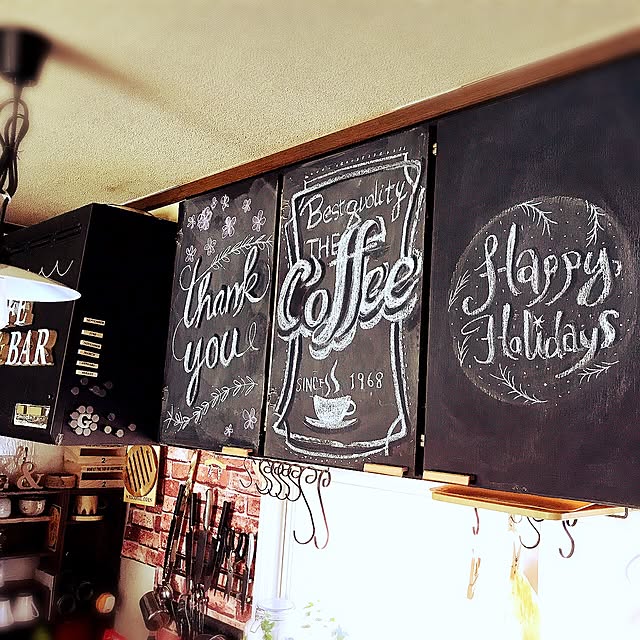 BAR
thank
you
Best quality
THE
Coffee
SINCE 1968
Happy
Holidays